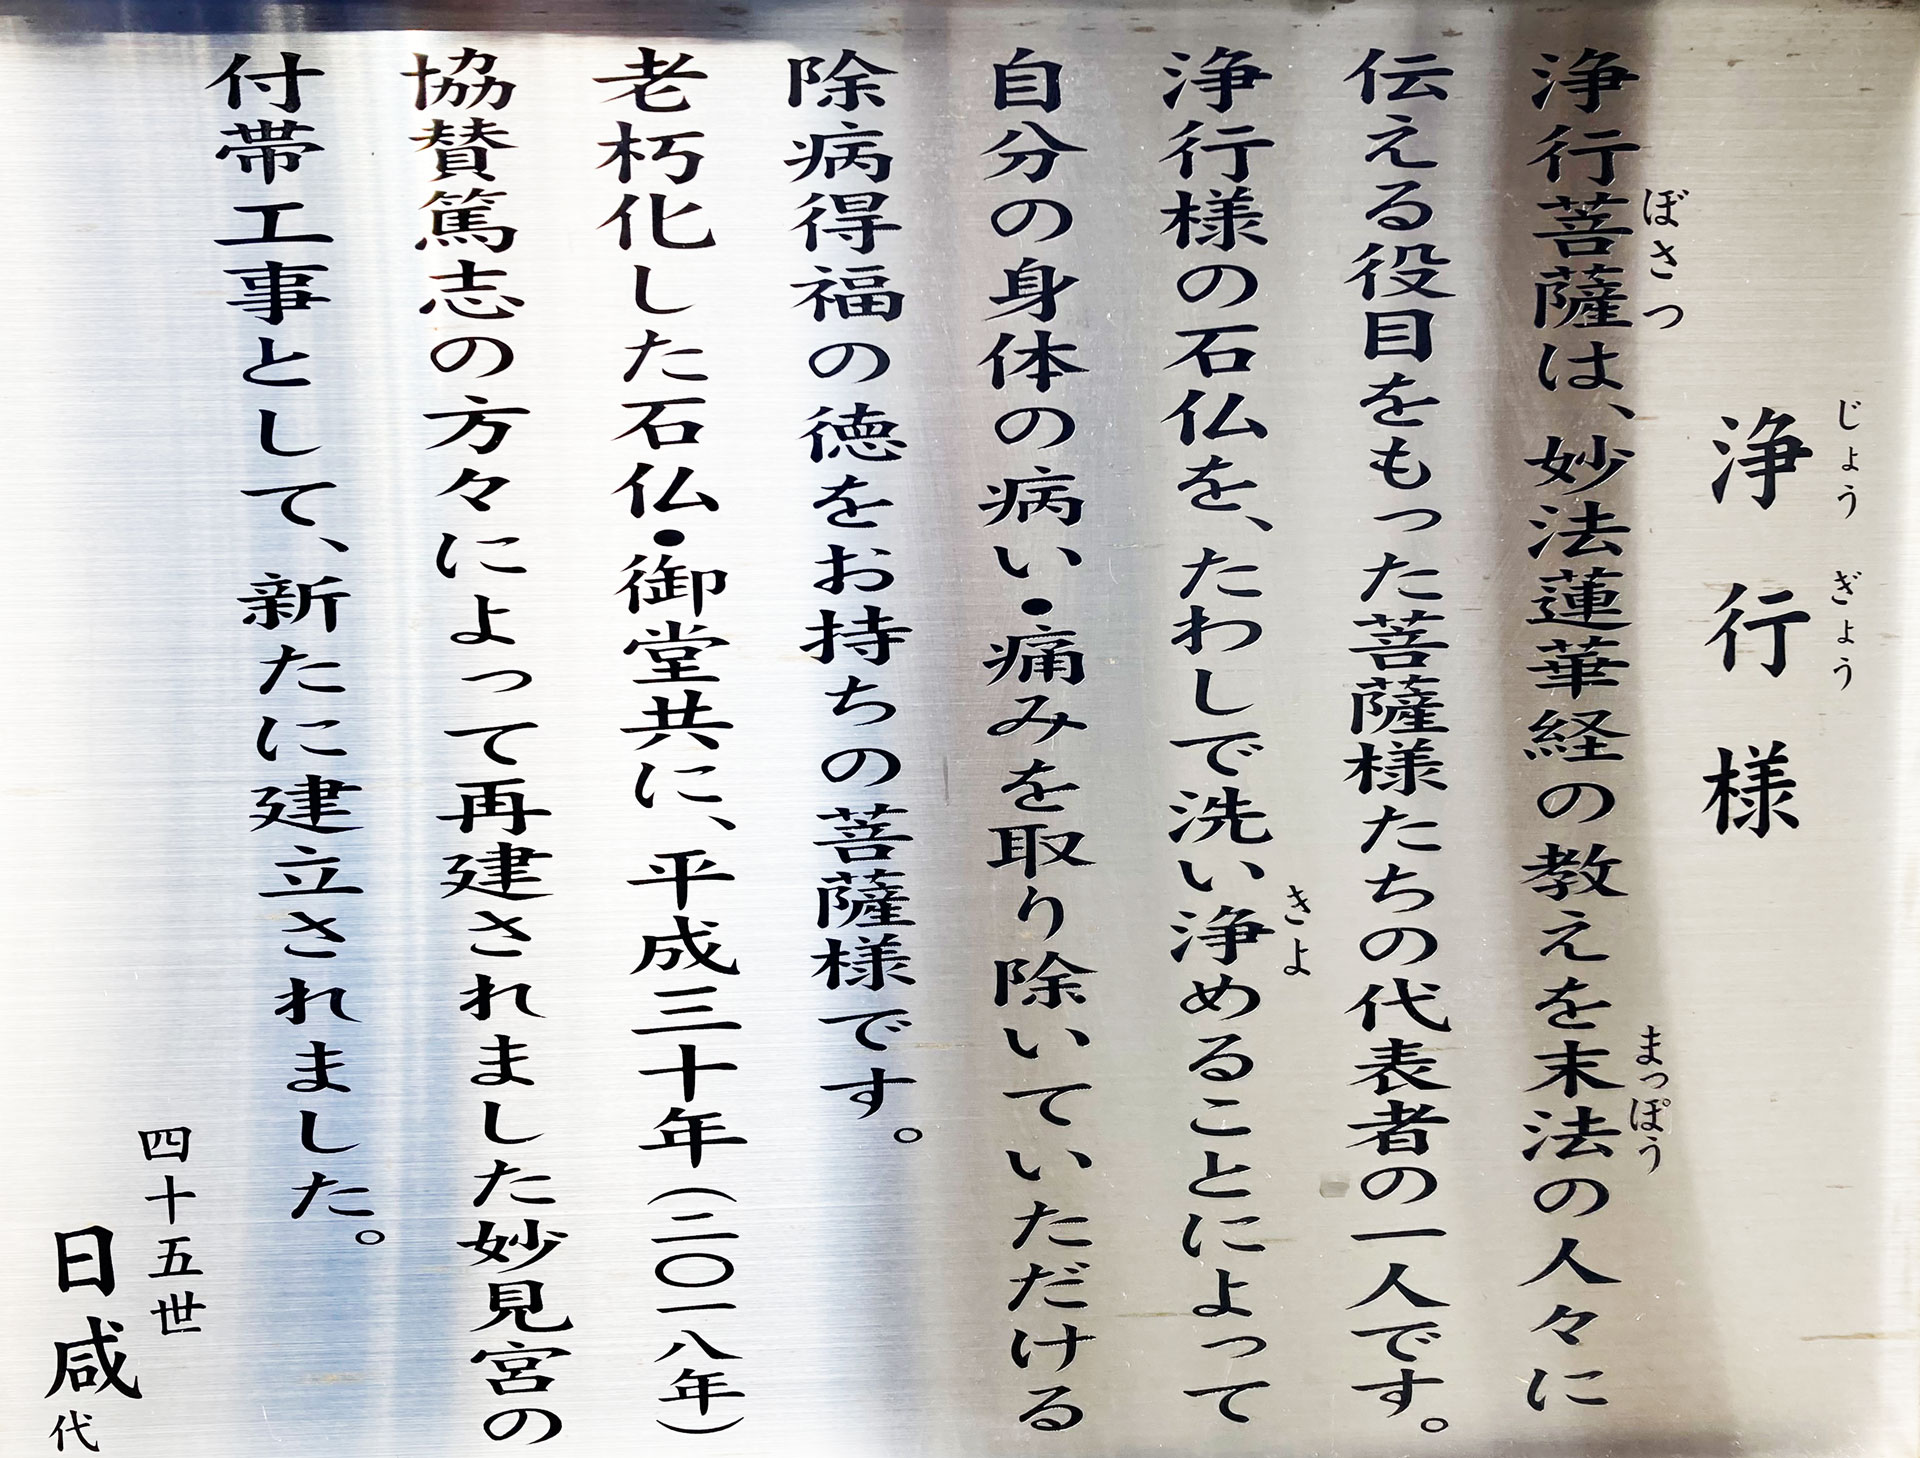 浄行様
じょうぎょう
浄行菩薩は、妙法蓮華経の教えを末法の人々に
ぼさつ
まっぽう
伝える役目をもった菩薩様たちの代表者の一人です。
浄行様の石仏を、たわしで洗い浄めることによって
きよ
自分の身体の病い・痛みを取り除いていただける
除病得福の徳をお持ちの菩薩様です。
老朽化した石仏・御堂共に、平成三十年(二〇一八年)
協賛篤志の方々によって再建されました妙見宮の
付帯工事として、新たに建立されました。
四十五世
日咸代